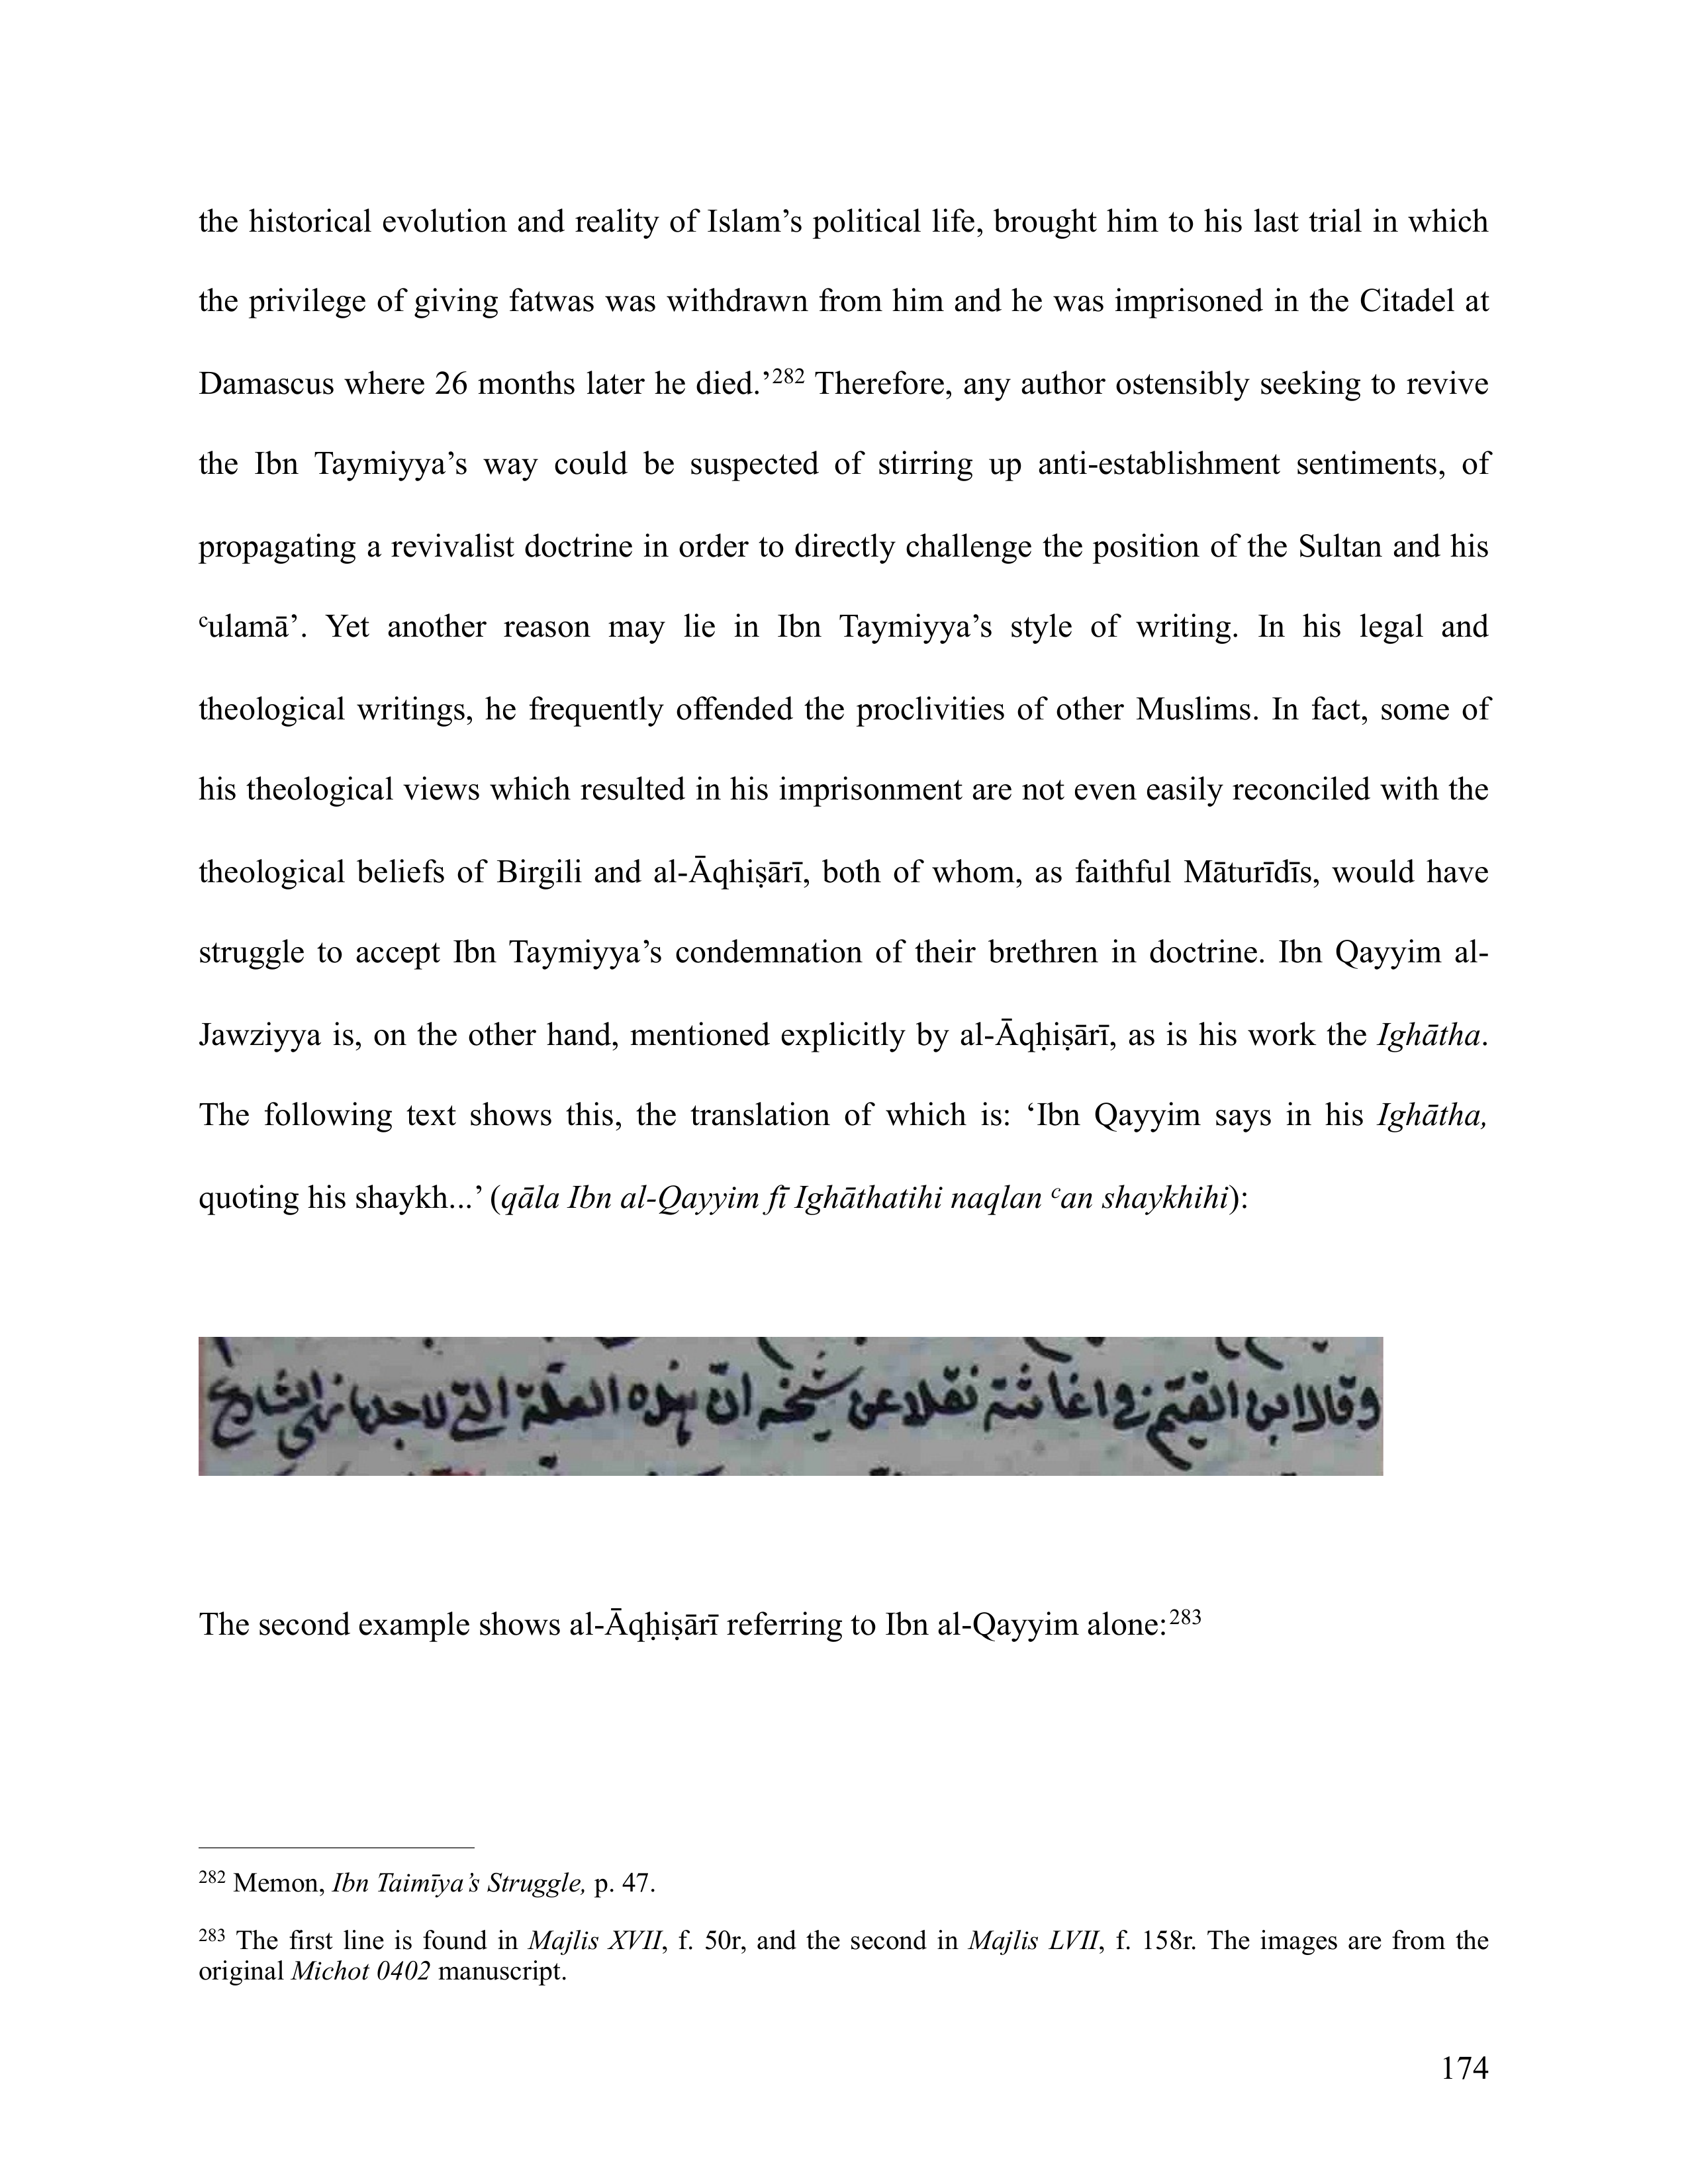 the historical evolution and reality of Islam’s political life, brought him to his last trial in which
the privilege of giving fatwas was withdrawn from him and he was imprisoned in the Citadel at
Damascus where 26 months later he died.’282 Therefore, any author ostensibly seeking to revive
the Ibn Taymiyya’s way could be suspected of stirring up anti-establishment sentiments, of
propagating a revivalist doctrine in order to directly challenge the position of the Sultan and his
ᶜulamā’. Yet another reason may lie in Ibn Taymiyya’s style of writing. In his legal and
theological writings, he frequently offended the proclivities of other Muslims. In fact, some of
his theological views which resulted in his imprisonment are not even easily reconciled with the
theological beliefs of Birgili and al-Āqhiṣārī, both of whom, as faithful Māturīdīs, would have
struggle to accept Ibn Taymiyya’s condemnation of their brethren in doctrine. Ibn Qayyim al-
Jawziyya is, on the other hand, mentioned explicitly by al-Āqḥiṣārī, as is his work the Ighātha.
The following text shows this, the translation of which is: ‘Ibn Qayyim says in his Ighātha,
quoting his shaykh...’ (qāla Ibn al-Qayyim fī Ighāthatihi naqlan ᶜan shaykhihi):
وقال ابن القيّم في اغاثته نقلا عن شيخه انّ هذه العلّة التي لاجلها نهى الشارع
The second example shows al-Āqḥiṣārī referring to Ibn al-Qayyim alone:283
282 Memon, Ibn Taimīya’s Struggle, p. 47.
283 The first line is found in Majlis XVII, f. 50r, and the second in Majlis LVII, f. 158r. The images are from the
original Michot 0402 manuscript.
174